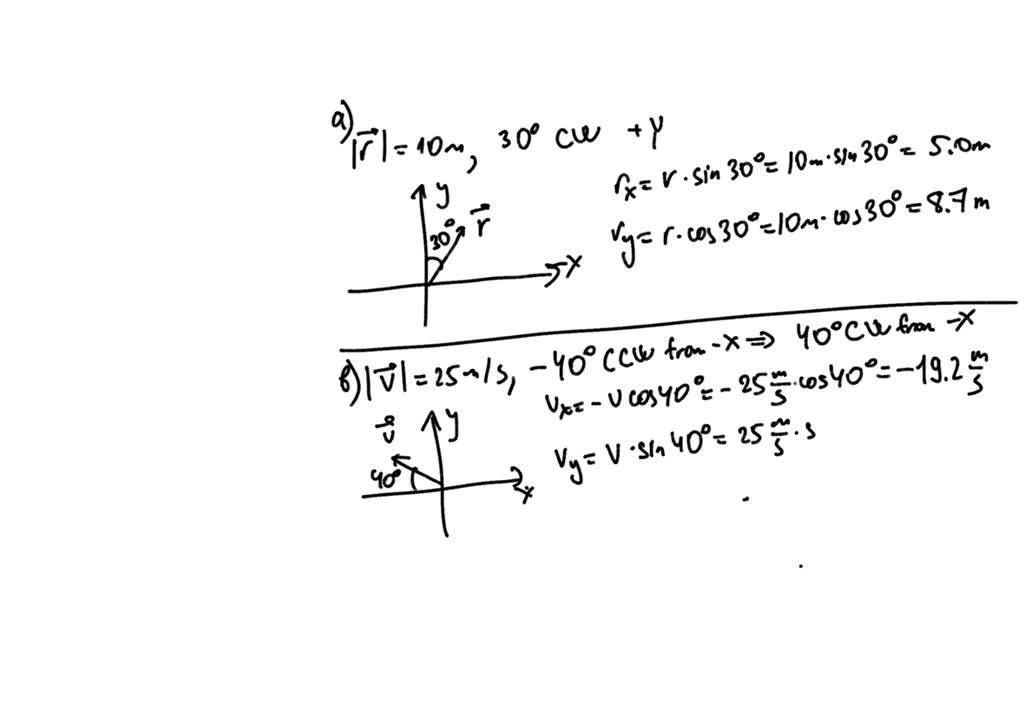 a)
|r⃗| = 10m, 30° CW +Y
rx = r · sin 30° = 10m · sin 30° = 5.0m
ry = r · cos 30° = 10m · cos 30° = 8.7 m
y
30° r⃗
x
b) |v⃗| = 25 m/s, -40° CCW from -X ⇒ 40° CW from -X
vx = - v cos 40° = - 25 m/s · cos 40° = -19.2 m/s
vy = v · sin 40° = 25 m/s · s
v⃗ y
40°
x